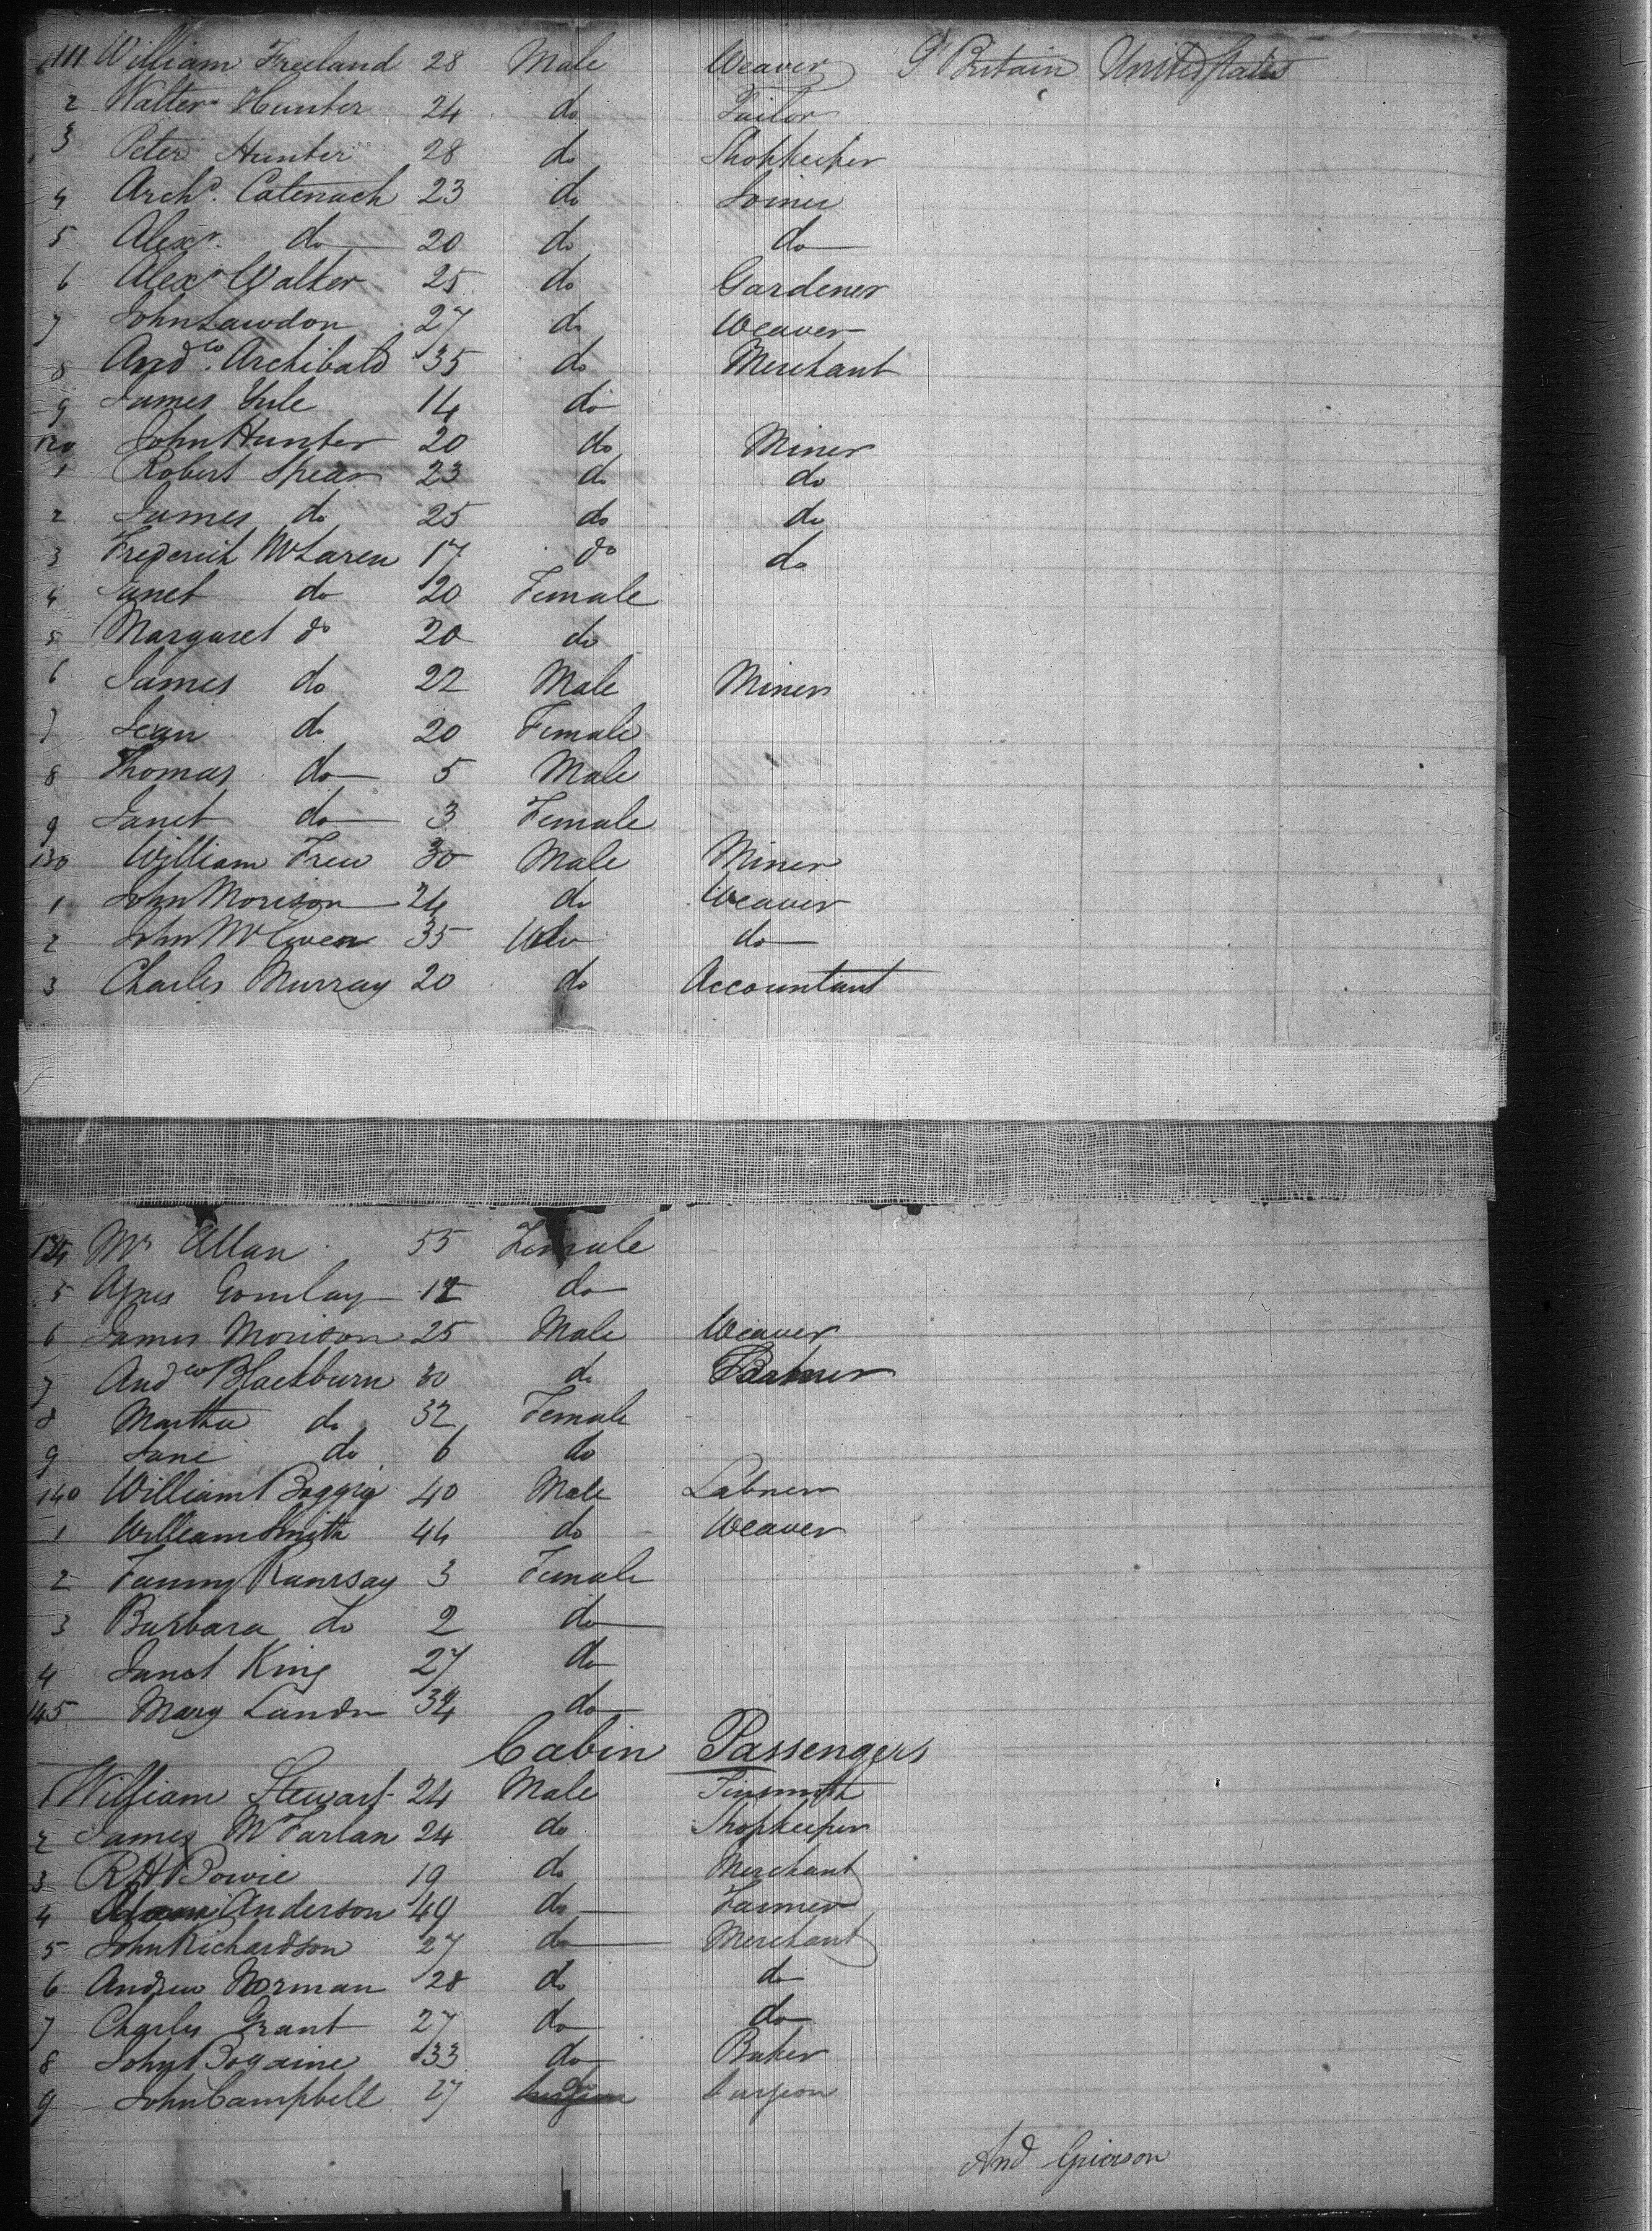 111 William Freeland 28 Male Weaver Gt Britain United States
2 Walter Hunter 24 do Tailor
3 Peter Hunter 28 do Shopkeeper
4 Archd. Catenach 23 do Joiner
5 Alexr. do 20 do do
6 Alexr Walker 25 do Gardener
7 John Lawdon 27 do Weaver
8 Andw. Archibald 35 do Merchant
9 James Yule 14 do
120 John Hunter 20 do Miner
1 Robert Spear 23 do do
2 James do 25 do do
3 Frederick McLaren 17 do do
4 Janet do 20 Female
5 Margaret do 20 do
6 James do 22 Male Miner
7 Jean do 20 Female
8 Thomas do 5 Male
9 Janet do 3 Female
130 William Frew 30 Male Miner
1 John Morison 24 do Weaver
2 John McEwen 35 do do
3 Charles Murray 20 do Accountant
134 Mrs Allan 55 Female
5 Agnes Gourlay 12 do
6 James Morison 25 Male Weaver
7 Andw Blackburn 30 do
8 Martha do 32 Female
9 Jane do 6 do
140 William 40 Male Labner
1 William Smith 44 do Weaver
2 Fanny Ramsay 3 Female
3 Barbara do 2 do
4 Janet King 27 do
145 Mary do
Cabin Passengers
1 William Stewart 24 Male Tinsmith
2 James McFarlan 24 do Shopkeeper
3 R H Bowie 19 do Merchant
4 Anderson 49 do Farmer
5 John Richardson 27 do Merchant
6 Andrew Norman 28 do do
7 Charles Grant 27 do do
8 John Bogaine 33 do Baker
9 John Campbell 27 do Surgeon
And Grierson